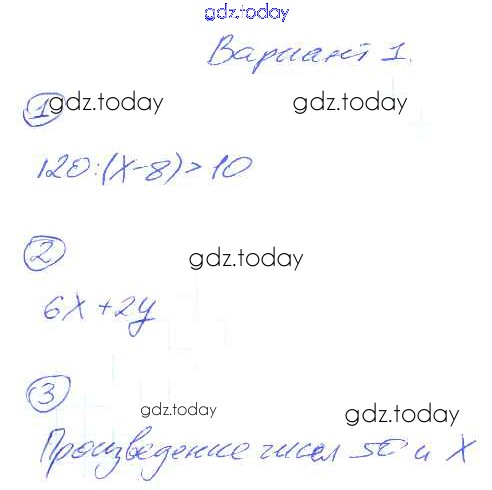 gdz.today
Вариант 1.
1 gdz.today gdz.today
120:(x-8)>10
2 gdz.today
6x+2y
3 gdz.today gdz.today
Произведение чисел 50 и x